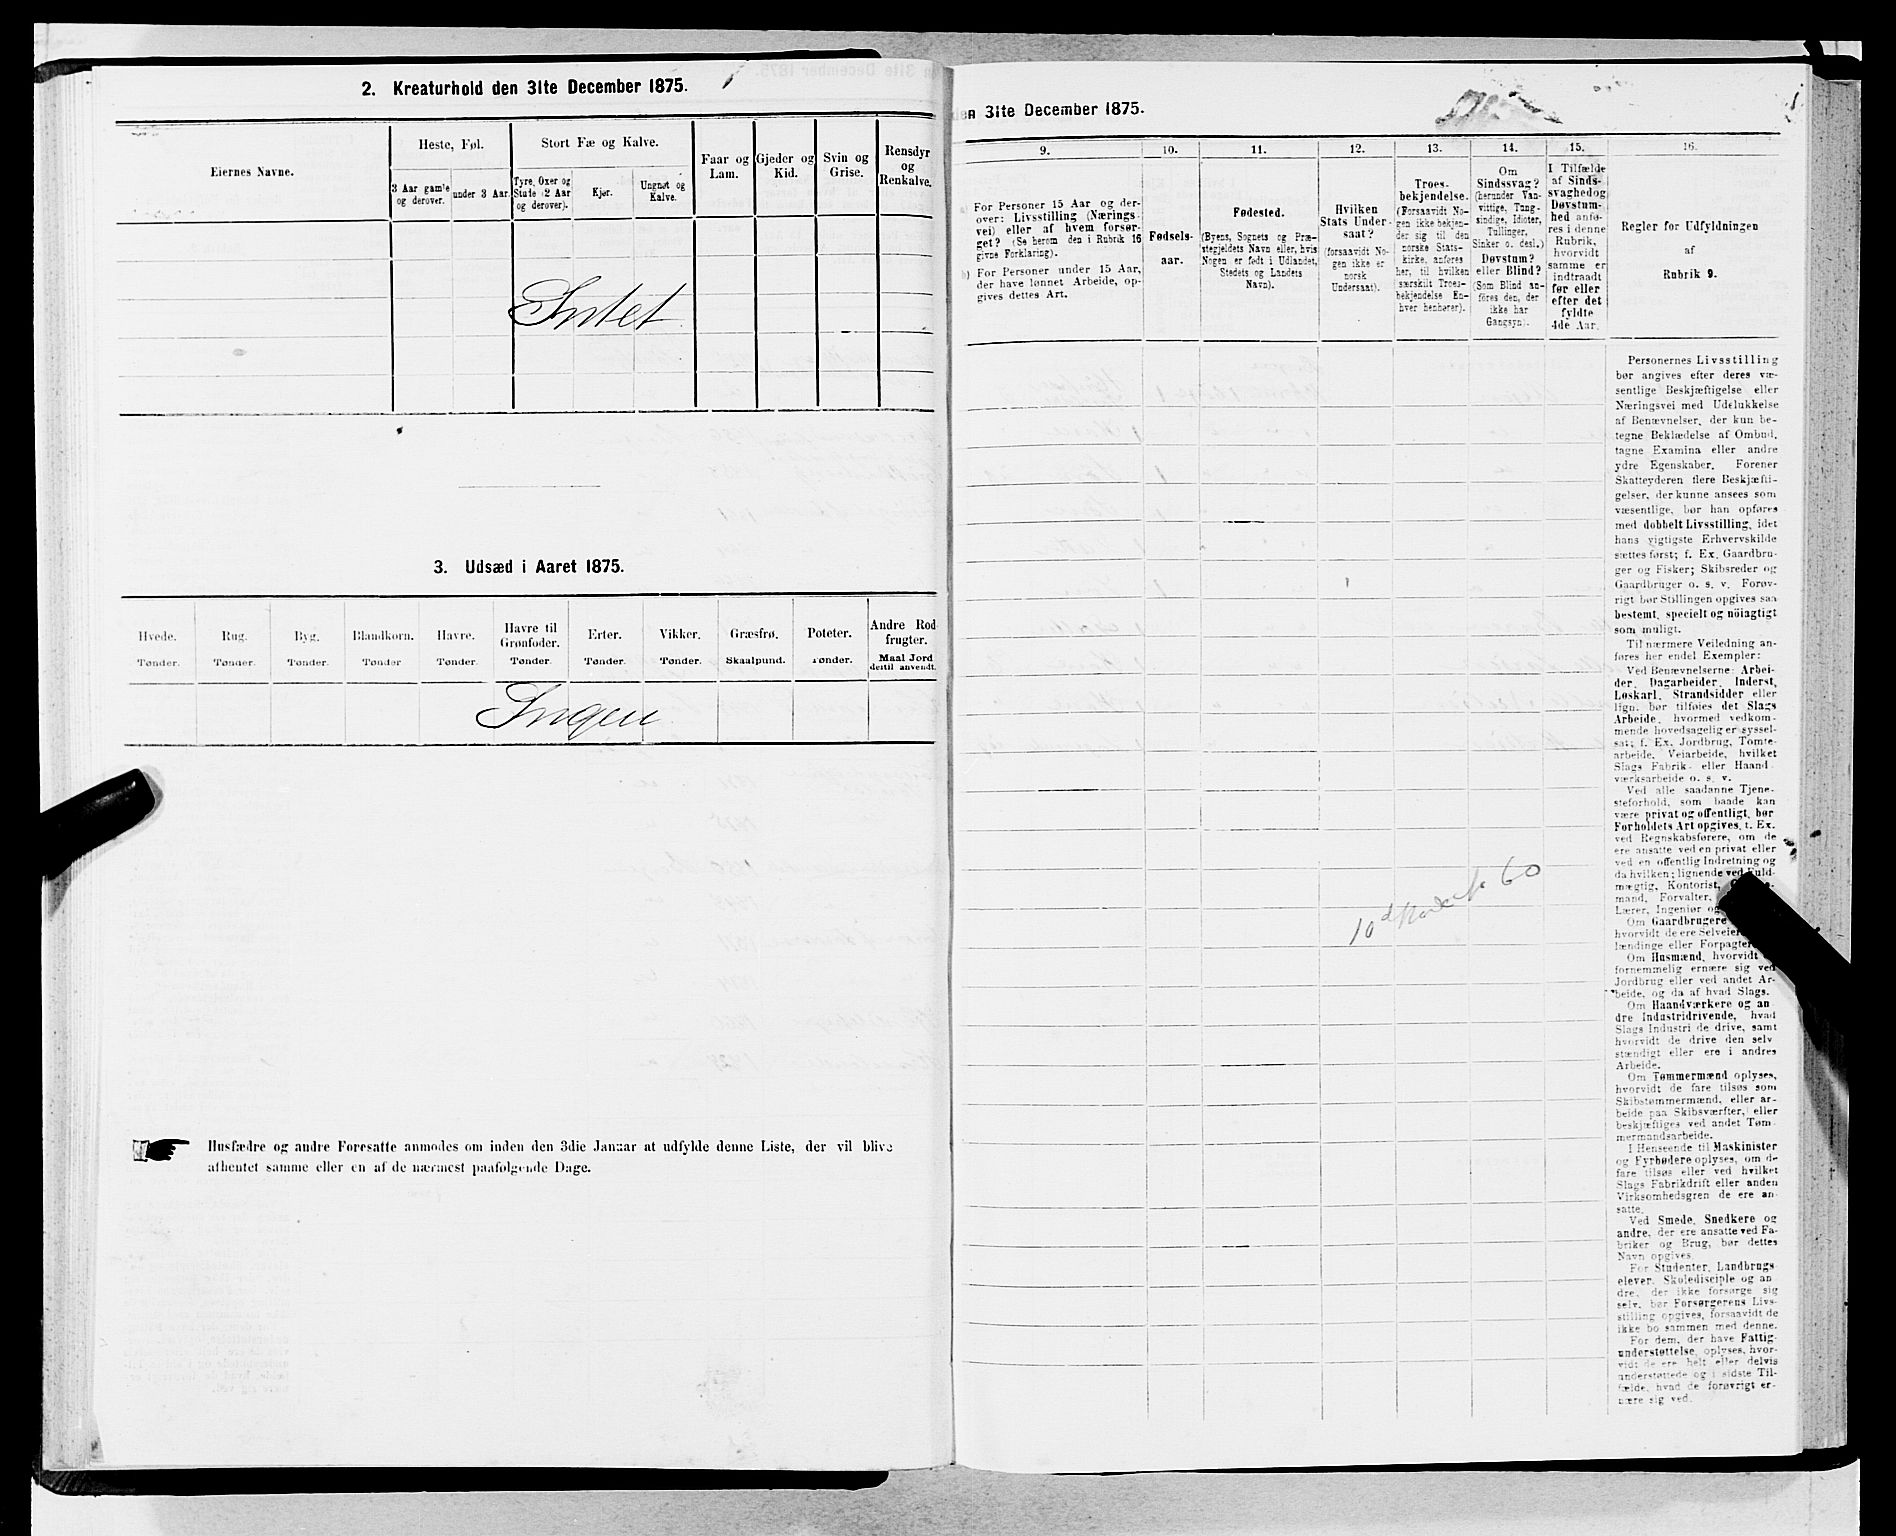 2. Kreaturhold den 31te December 1875.
Eiernes Navne.
Heste, Føl.
3 Aar gamle og derover.
under 3 Aar.
Stort Fæ og Kalve.
Tyre, Oxer og Stude (2 Aar og derover).
Kjør.
Ungnøt og Kalve.
Faar og Lam.
Gjeder og Kid.
Svin og Grise.
Rensdyr og Renkalve.
Intet
3. Udsæd i Aaret 1875.
Hvede. Tønder.
Rug. Tønder.
Byg. Tønder.
Blandkorn. Tønder
Havre. Tønder.
Havre til Grønfoder. Tønder.
Erter. Tønder.
Vikker. Tønder.
Græsfrø. Skaalpund.
Poteter. Tønder.
Andre Rodfrugter. Maal Jord dertil anvendt.
Ingen
Husfædre og andre Foresatte anmodes om inden den 3die Januar at udfylde denne Liste, der vil blive
afhentet samme eller en af de nærmest paafølgende Dage.
den 31te December 1875.
9.
For Personer 15 Aar og der-
over: Livsstilling (Nærings-
vei) eller af hvem forsør-
get? (Se herom den i Rubrik 16
givne Forklaring).
b) For Personer under 15 Aar,
der have lønnet Arbeide, op-
gives dettes Art.
10.
Fødsels-
aar.
11.
Fødested.
(Byens, Sognets og Præ-
stegjeldets Navn eller, hvis
Nogen er født i Udlandet,
Stedets og Landets
Navn).
12.
Hvilken
Stats Under-
saat?
(forsaavidt No-
gen ikke er
norsk
Undersaat).
13.
Troes-
bekjendelse.
(Forsaavidt No-
gen ikke bekjen-
der sig til den
norske Stats-
kirke, anføres
her, til hvilken
særskilt Troes-
bekjendelse En-
hver henhører).
14.
Om
Sindssvag?
(herunder Van-
vittige, Tung-
sindige, Idioter,
Tullinger,
Sinker o. desl.)
Døvstum?
eller Blind?
(Som Blind an-
føres den, der
ikke har
Gangsyn).
15.
I Tilfælde
af Sinds-
svaghed og
Døvstum-
hed anfø-
res i denne
Rubrik,
hvorvidt
samme er
indtraadt
før eller
efter det
fyldte
4de Aar.
16.
Regler for Udfyldningen
af
Rubrik 9.
Personernes Livsstilling
bør angives efter deres væ-
sentlige Beskjæftigelse eller
Næringsvei med Udelukkelse
af Benævnelser, der kun be-
tegne Beklædelse af Ombud,
tagne Examina eller andre
ydre Egenskaber. Forener
Skatteyderen flere Beskjæfti-
gelser, der kunne ansees som
væsentlige, bør han opføres
med dobbelt Livsstilling, idet
hans vigtigste Erhvervskilde
sættes først; f. Ex. Gaardbru-
ger og Fisker; Skibsreder og
Gaardbruger o. s. v. Forøv-
rigt bør Stillingen opgives saa
bestemt, specielt og nöiagtigt
som muligt.
Til nærmere Veiledning an-
føres her endel Exempler:
Ved Benævnelserne: Arbei-
der, Dagarbeider, Inderst,
Løskarl, Strandsidder eller
lign. bør tilføies det Slags
Arbeide, hvormed vedkom-
mende hovedsagelig er syssel-
sat; f. Ex. Jordbrug, Tomte-
arbeide, Veiarbeide, hvilket
Slags Fabrik- eller Haand-
værksarbeide o. s. v.
Ved alle saadanne Tjene-
steforhold, som baade kan
være privat og offentligt, bør
Forholdets Art opgives, t. Ex.
ved Regnskabsførere, om de
ere ansatte ved en privat eller
ved en offentlig Indretning og
da hvilken; lignende ved Fuld-
mægtig, Kontorist,
mand, Forvalter,
Lærer, Ingeniør og
Om Gaardbrugere
hvorvidt de ere Selveiere,
lændinge eller Forpagtere
Om Husmænd, hvorvidt
fornemmelig ernære sig ved
Jordbrug eller ved andet Ar-
beide, og da af hvad Slags.
Om Haandværkere og an-
dre Industridrivende, hvad
Slags Industri de drive, samt
hvorvidt de drive den selv-
stændigt eller ere i andres
Arbeide.
Om Tømmermænd oplyses,
hvorvidt de fare tilsøs som
Skibstømmermænd, eller ar-
beide paa Skibsværfter, eller
beskjæftiges ved andet Tøm-
mermandsarbeide.
I Henseende til Maskinister
og Fyrbødere oplyses, om de
fare tilsøs eller ved hvilket
Slags Fabrikdrift eller anden
Virksomhedsgren de ere an-
satte.
Ved Smede, Snedkere og
andre, der ere ansatte ved Fa-
briker og Brug, bør dettes
Navn opgives.
For Studenter, Landbrugs-
elever, Skoledisciple og an-
dre, der ikke forsørge sig
selv, bør Forsørgerens Livs-
stilling opgives, forsaavidt de
ikke bo sammen med denne.
For dem, der have Fattig-
understøttelse, oplyses, hvor-
vidt de ere helt eller delvis
understøttede og i sidste Til-
fælde, hvad de forøvrigt er-
nære sig ved.
60